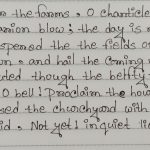 the farms. O chanticle
arion blow; the day is n
spered the the fields o
n. and hail the coming
ded though the belfry
O bell! Proclaim the ho
sed the churchyard with
id. Not yet! in quiet lie